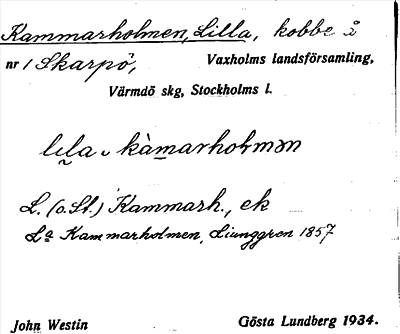 Kammarholmen, Lilla, kobbe å
nr 1 Skarpö, Vaxholms landsförsamling,
Värmdö skg, Stockholms l.
lila kàmarholmən
L. (o. St.) Kammarh., ek
La Kammarholmen, Ljunggren 1857
John Westin Gösta Lundberg 1934.